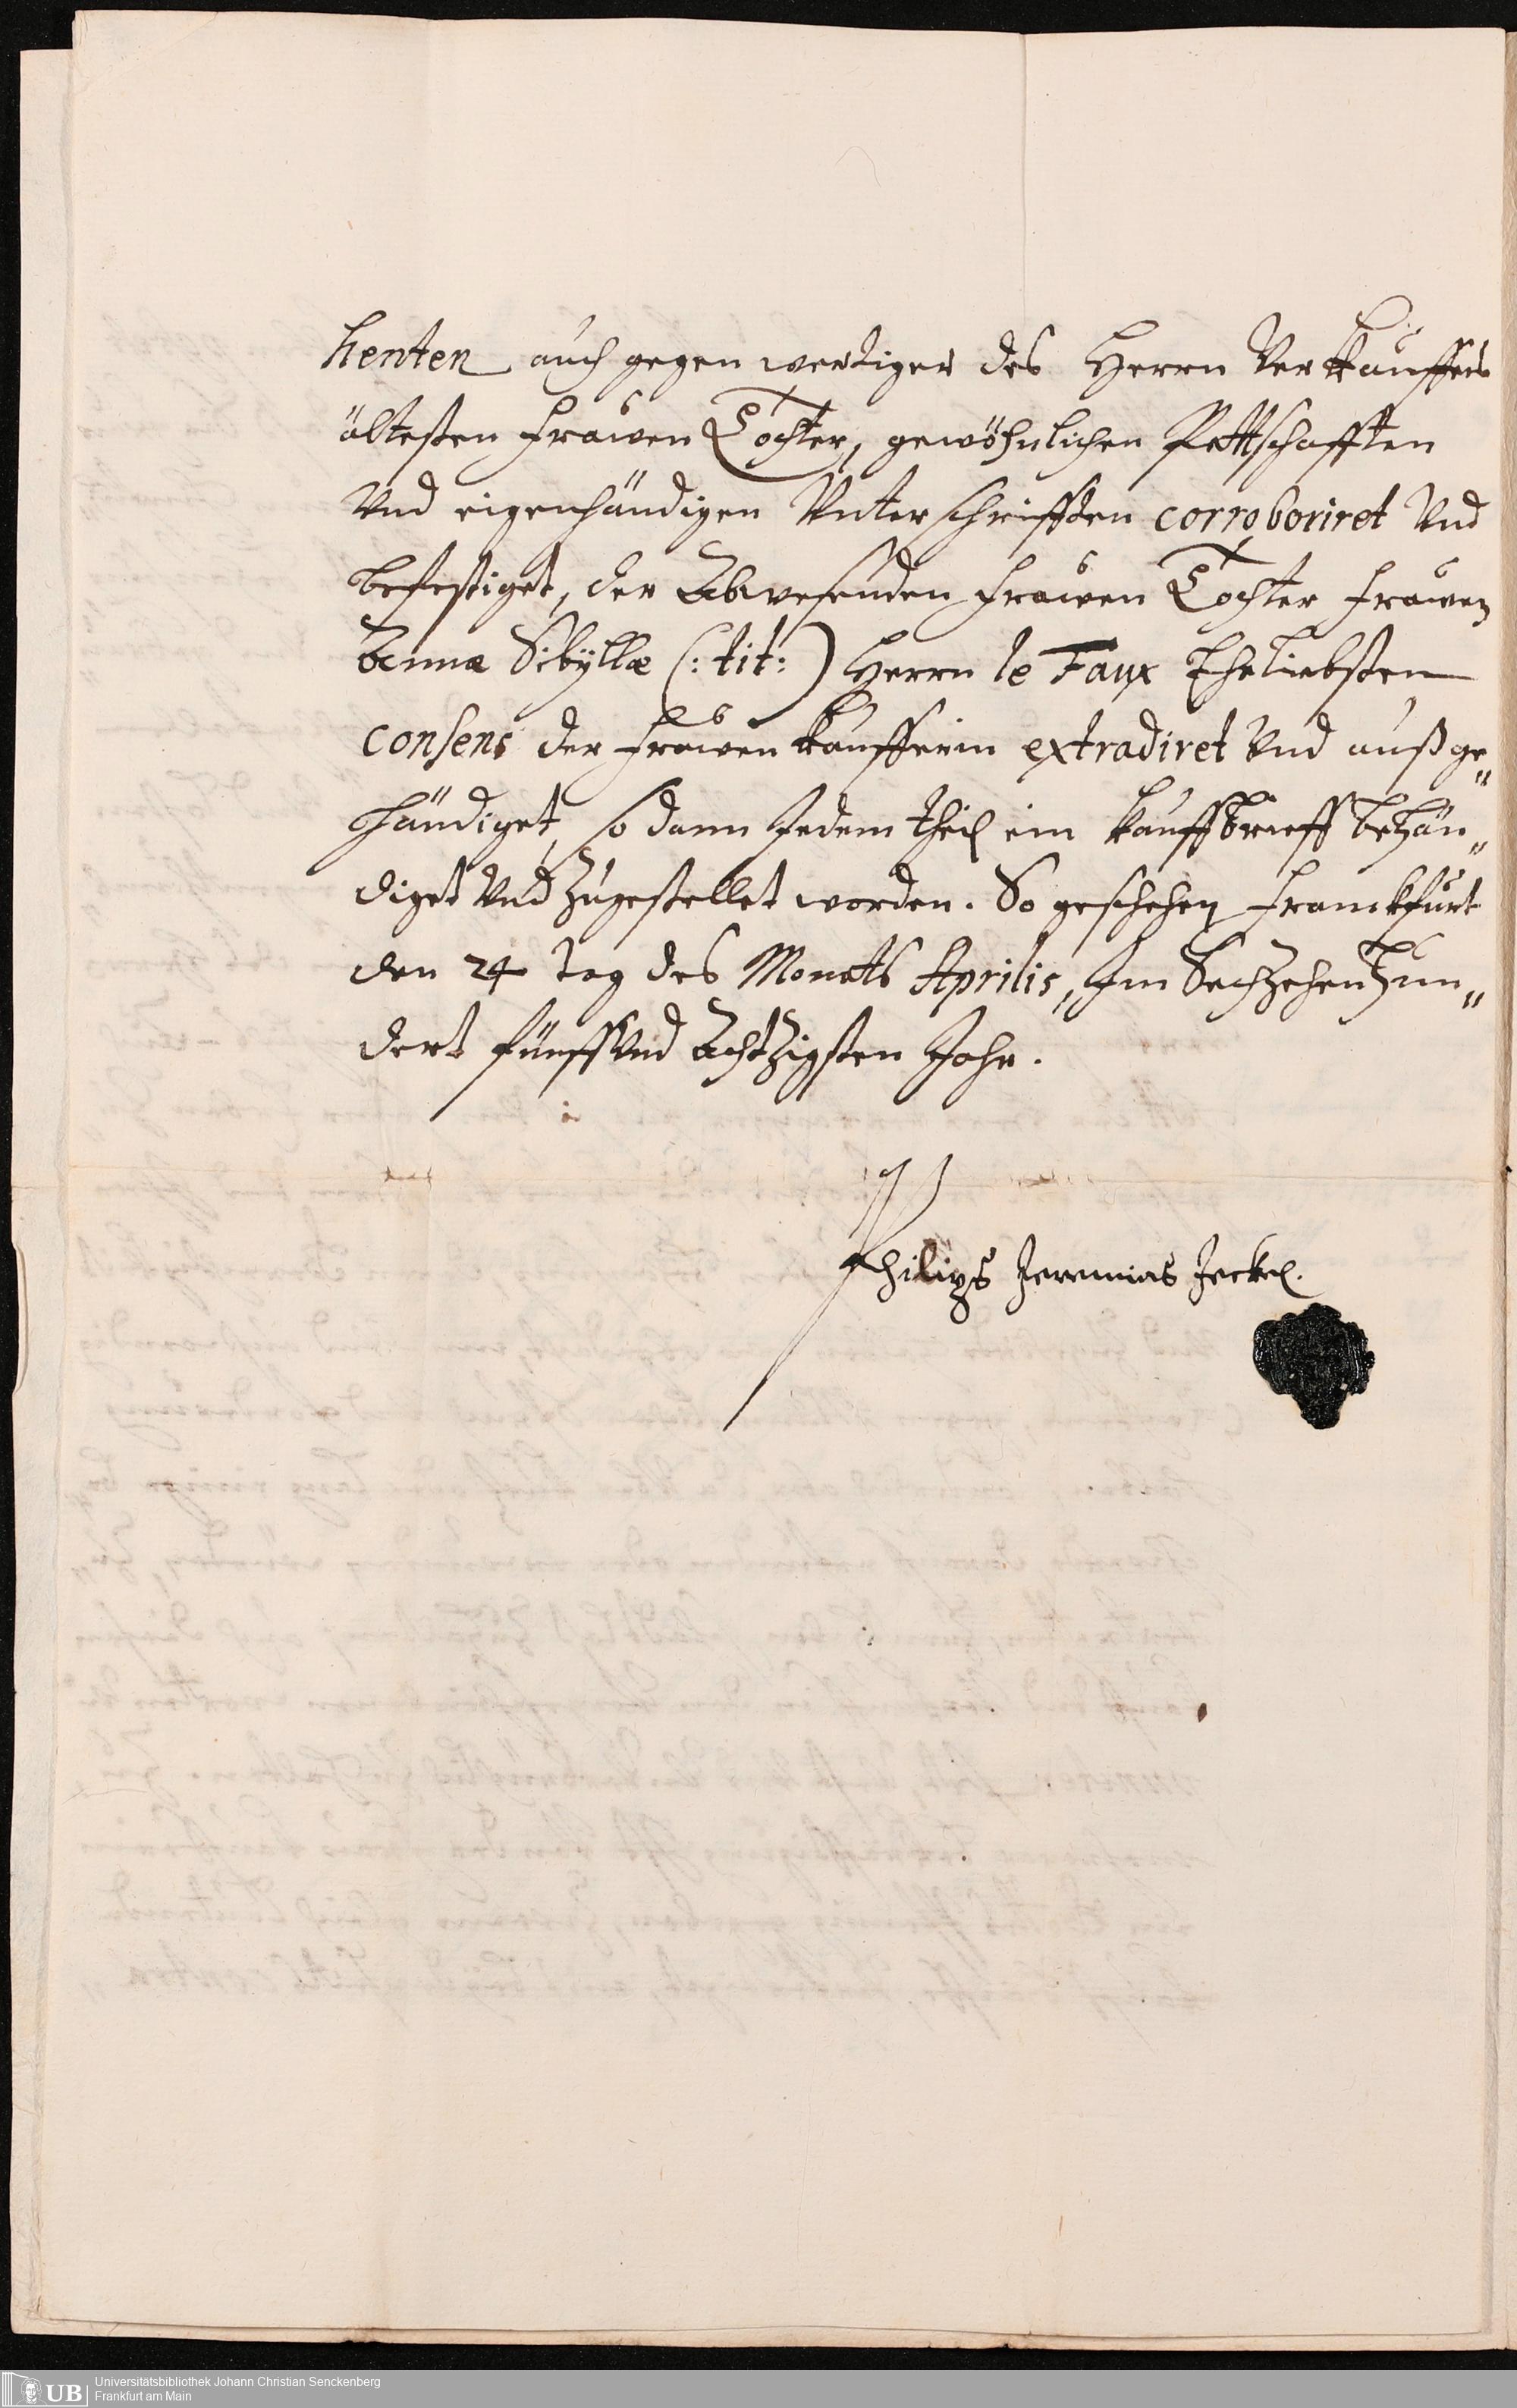 henten auch gegenwertiger des Herrn Verkäuffers
ältesten Frawen Tochter, gewöhnlichen Pettschafften
Vnd eigenhändigen Vnterschrifften corroboriret Vnd
befestiget, der Abwesenden Frawen Tochter Frawen
Annæ Sibyllæ (: tit: ) Herrn le Faux Eheliebsten
consens der Frawen Käufferin extradiret Vnd außge„
händiget, so dann Jedem theil ein Kauffbrieff behän„
diget Vnd zugestellet worden. So geschehen Franckfurt
den 24 Tag des Monats Aprilis, Im Sechzehenhun„
dert fünff Vnd Achtzigsten Jahr.
Philips Jeremias Jeckel.
UB Universitätsbibliothek Johann Christian Senckenberg
Frankfurt am Main